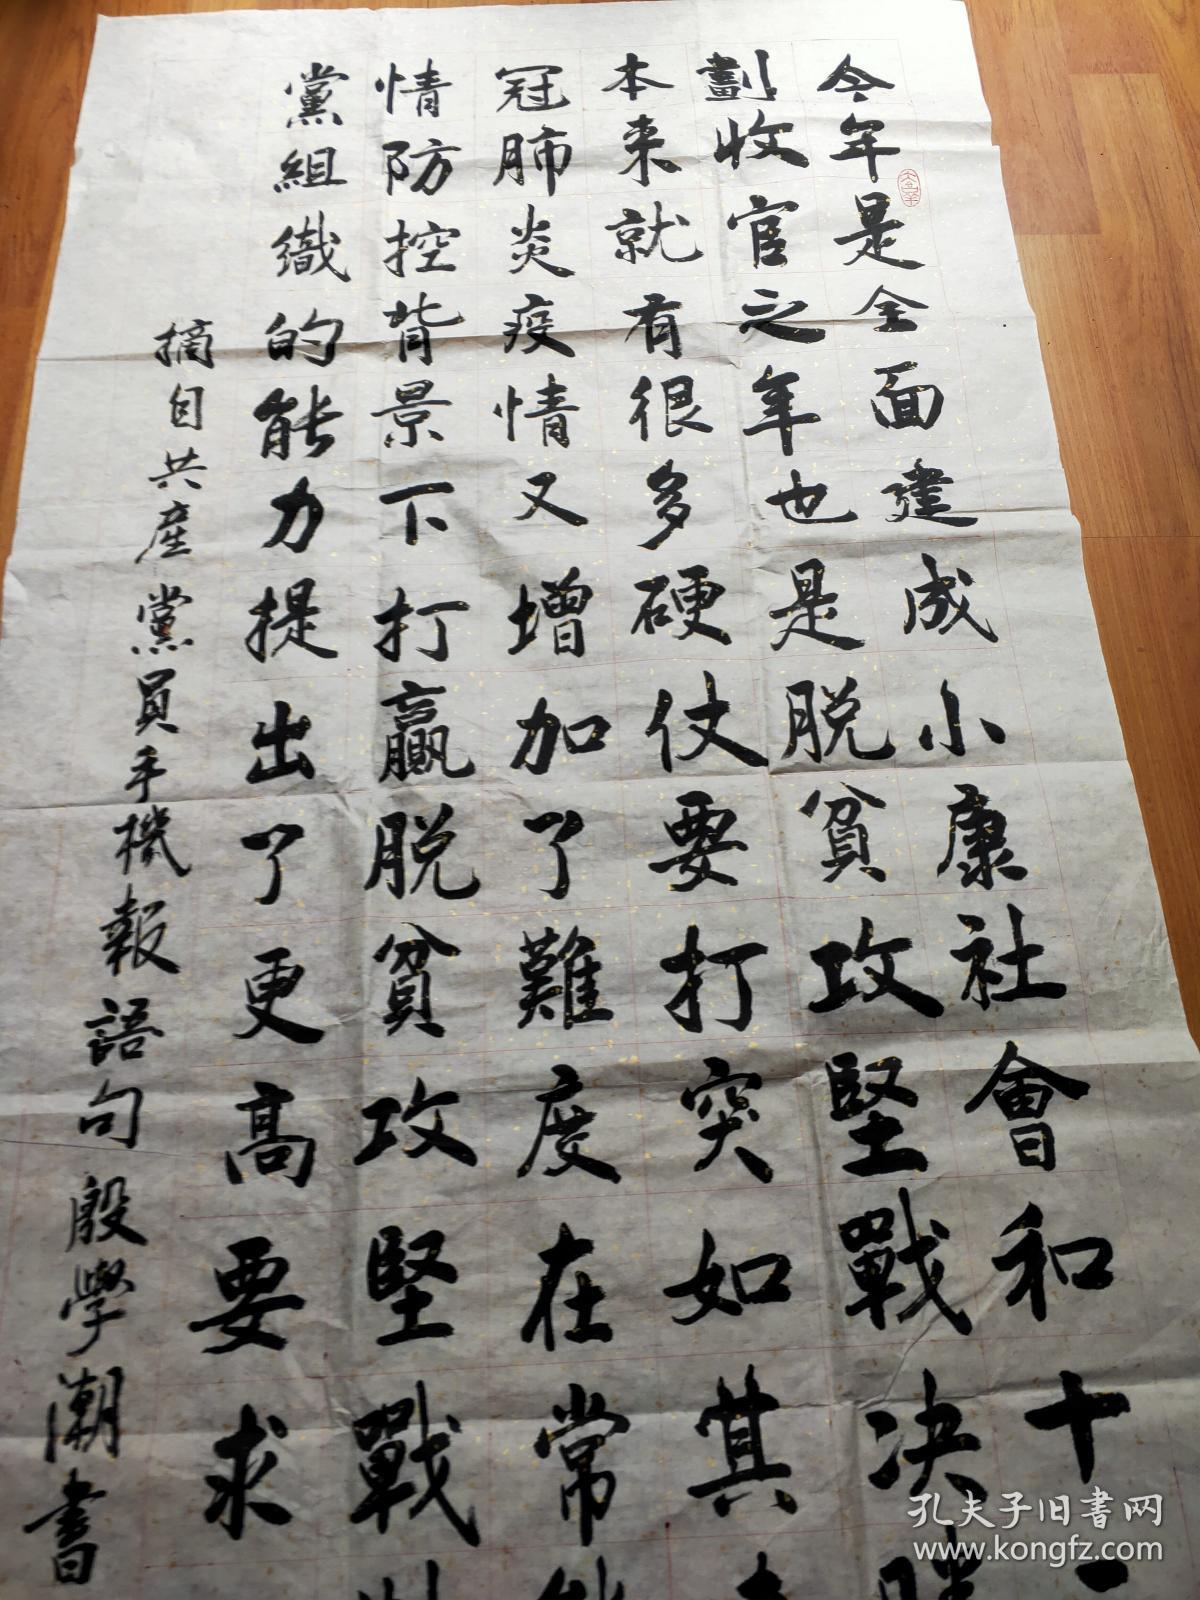 今年是全面建成小康社會和十
劃收官之年也是脱貧攻堅戰决
本来就有很多硬仗要打突如其
冠肺炎疫情又增加了難度在常
情防控背景下打贏脱貧攻堅戰
黨組織的能力提出了更高要求
摘自共産黨員手機報語句殷學潮書
孔夫子旧書网
www.kongfz.com